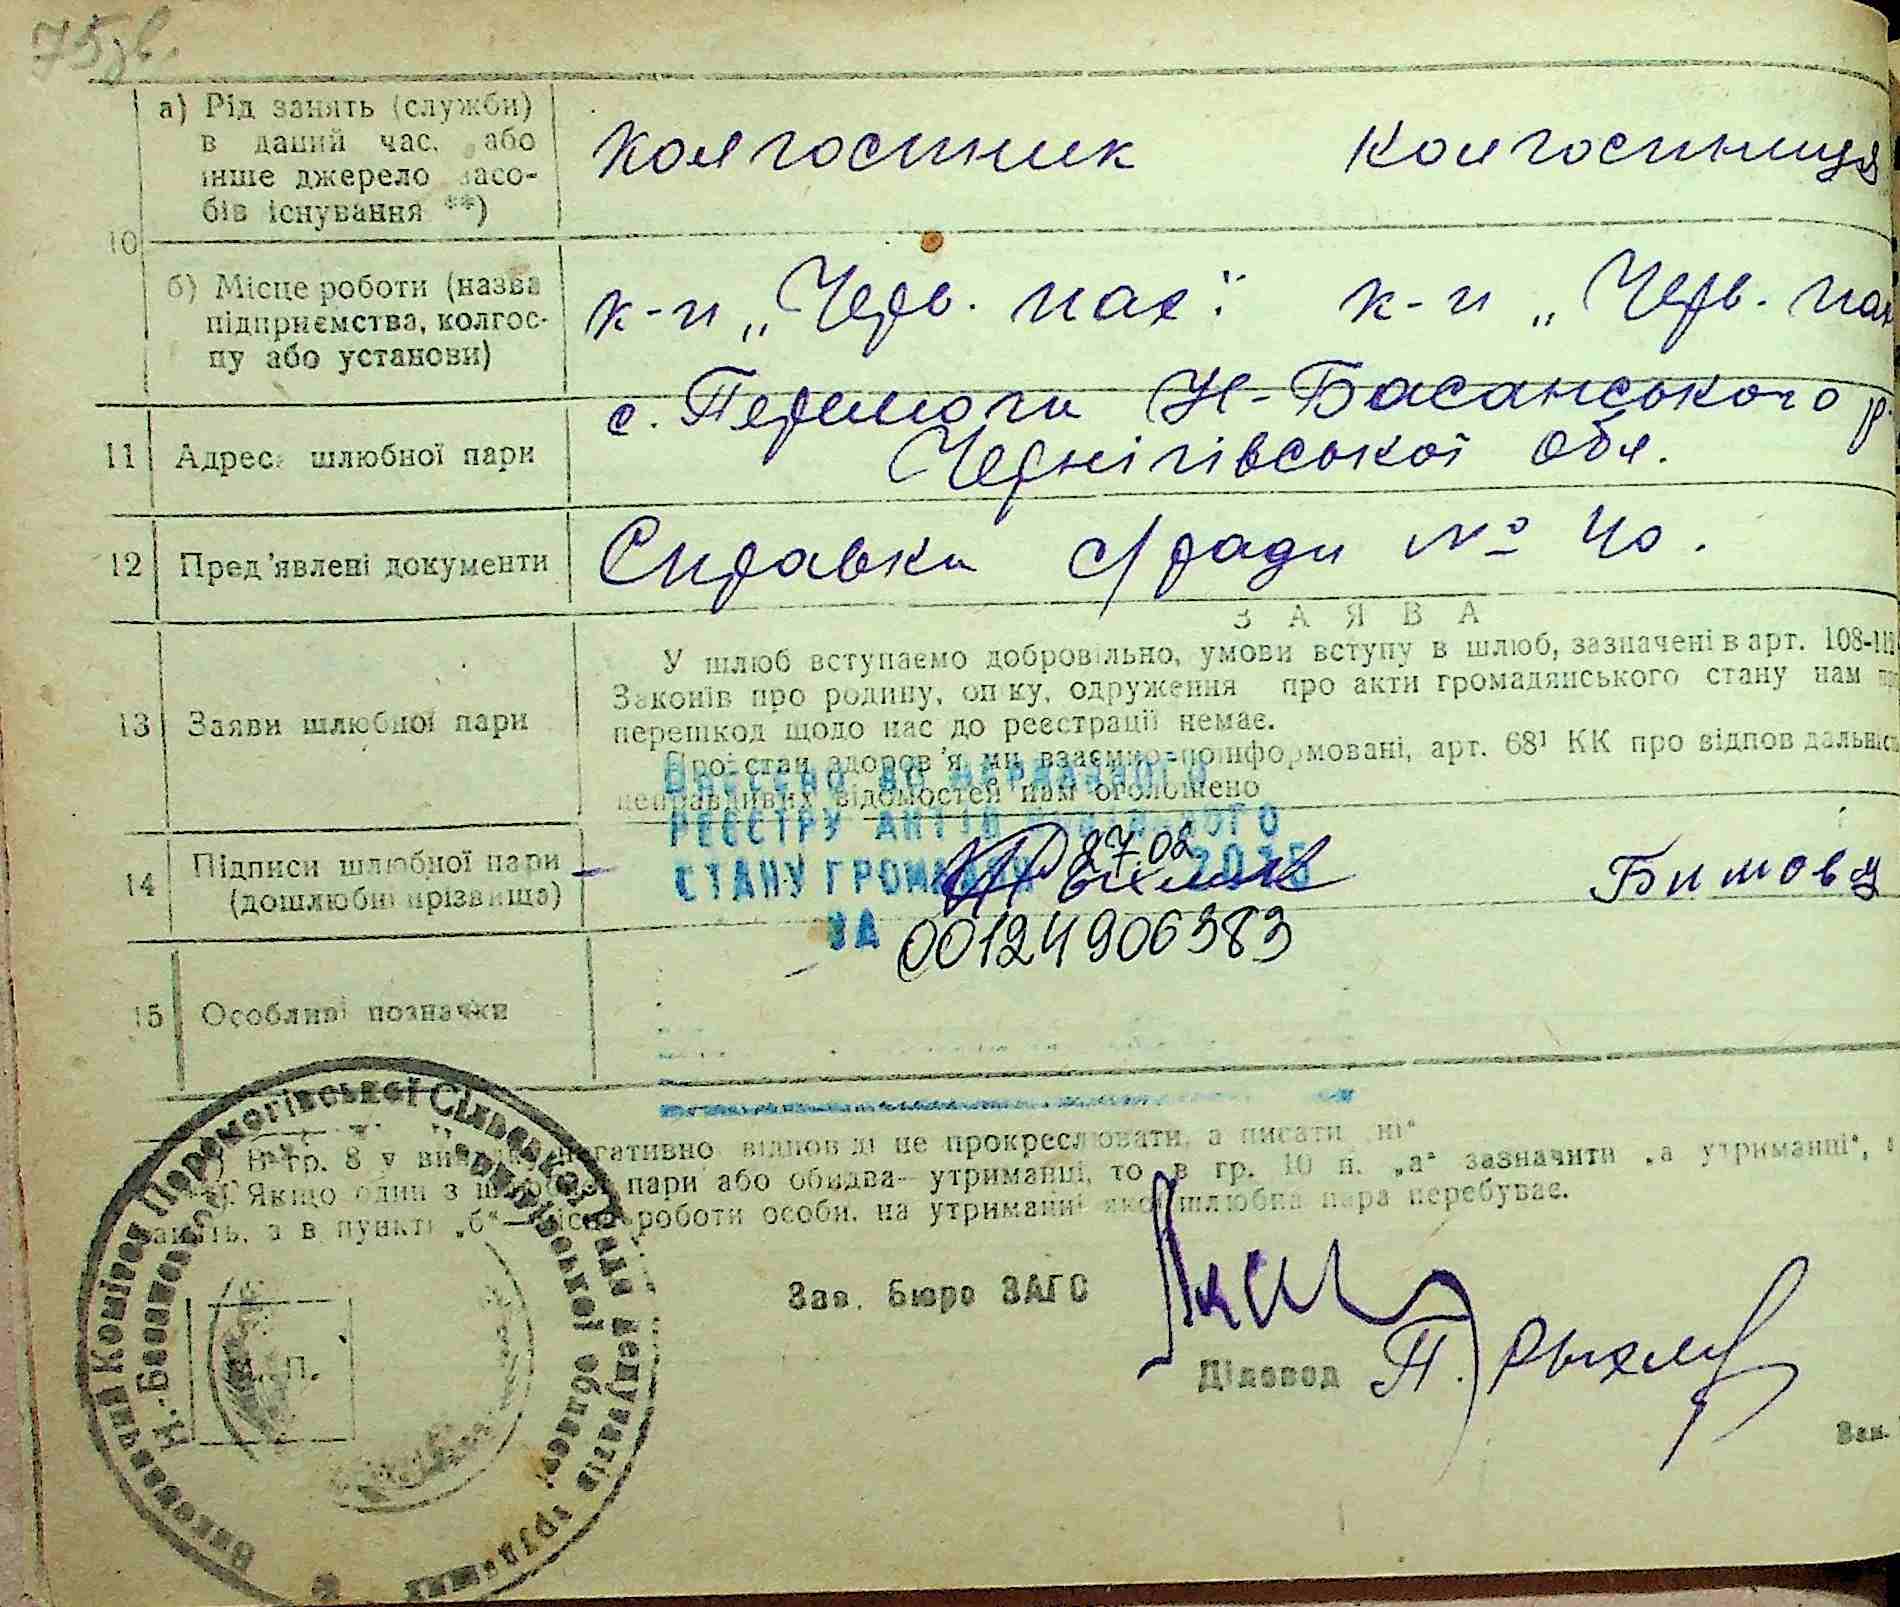 75зв.
10
а) Рід занять (служби)
в даний час, або
інше джерело засо-
бів існування **)
Колгоспник Колгоспниця
б) Місце роботи (назва
підприємства, колгос-
пу або установи)
к-п „Черв. пах." к-п „Черв. пах
11 Адреса шлюбної пари
с. Перемога Н-Басанського р.
Чернігівської обл.
12 Пред'явлені документи
Справка с/ради № 40.
ЗАЯВА
13 Заяви шлюбної пари
У шлюб вступаємо добровільно, умови вступу в шлюб, зазначені в арт. 108-
Законів про родину, опіку, одруження про акти громадянського стану нам
перешкод щодо нас до реєстрації немає.
Про стан здоров'я ми взаємно-поінформовані, арт. 68¹ КК про відповідальність
неправдивих відомостей нам оголошено
ВНЕСЕНО ДО ДЕРЖАВНОГО
РЕЄСТРУ АКТІВ ЦИВІЛЬНОГО
СТАНУ ГРОМАДЯН 27.02 2015
ЗА 00124906383
14 Підписи шлюбної пари
(дошлюбні прізвища)
15 Особливі позначки
В гр. 8 у випадку негативної відповіді не прокреслювати, а писати „ні"
Якщо один з шлюбної пари або обидва—утриманці, то в гр. 10 п. „а" зазначити „а утриманні",
занять, а в пункті „б"—місце роботи особи, на утриманні якої шлюбна пара перебуває.
Виконавчий Комітет Перемогівської Сільської Ради депутатів трудящих
Н.-Басанського Чернігівської області
М. П.
Зав. Бюро ЗАГС
Діловод
Зак.